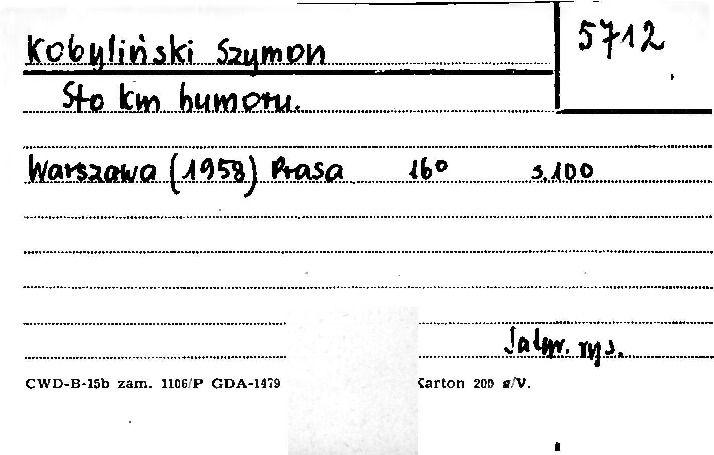 Kobyliński Szymon
5712
Sto km humoru.
Warszawa (1958) Prasa 16° s.100
Satyr. rys.
CWD-B-15b zam. 1106/P GDA-1479 Karton 200 g/V.